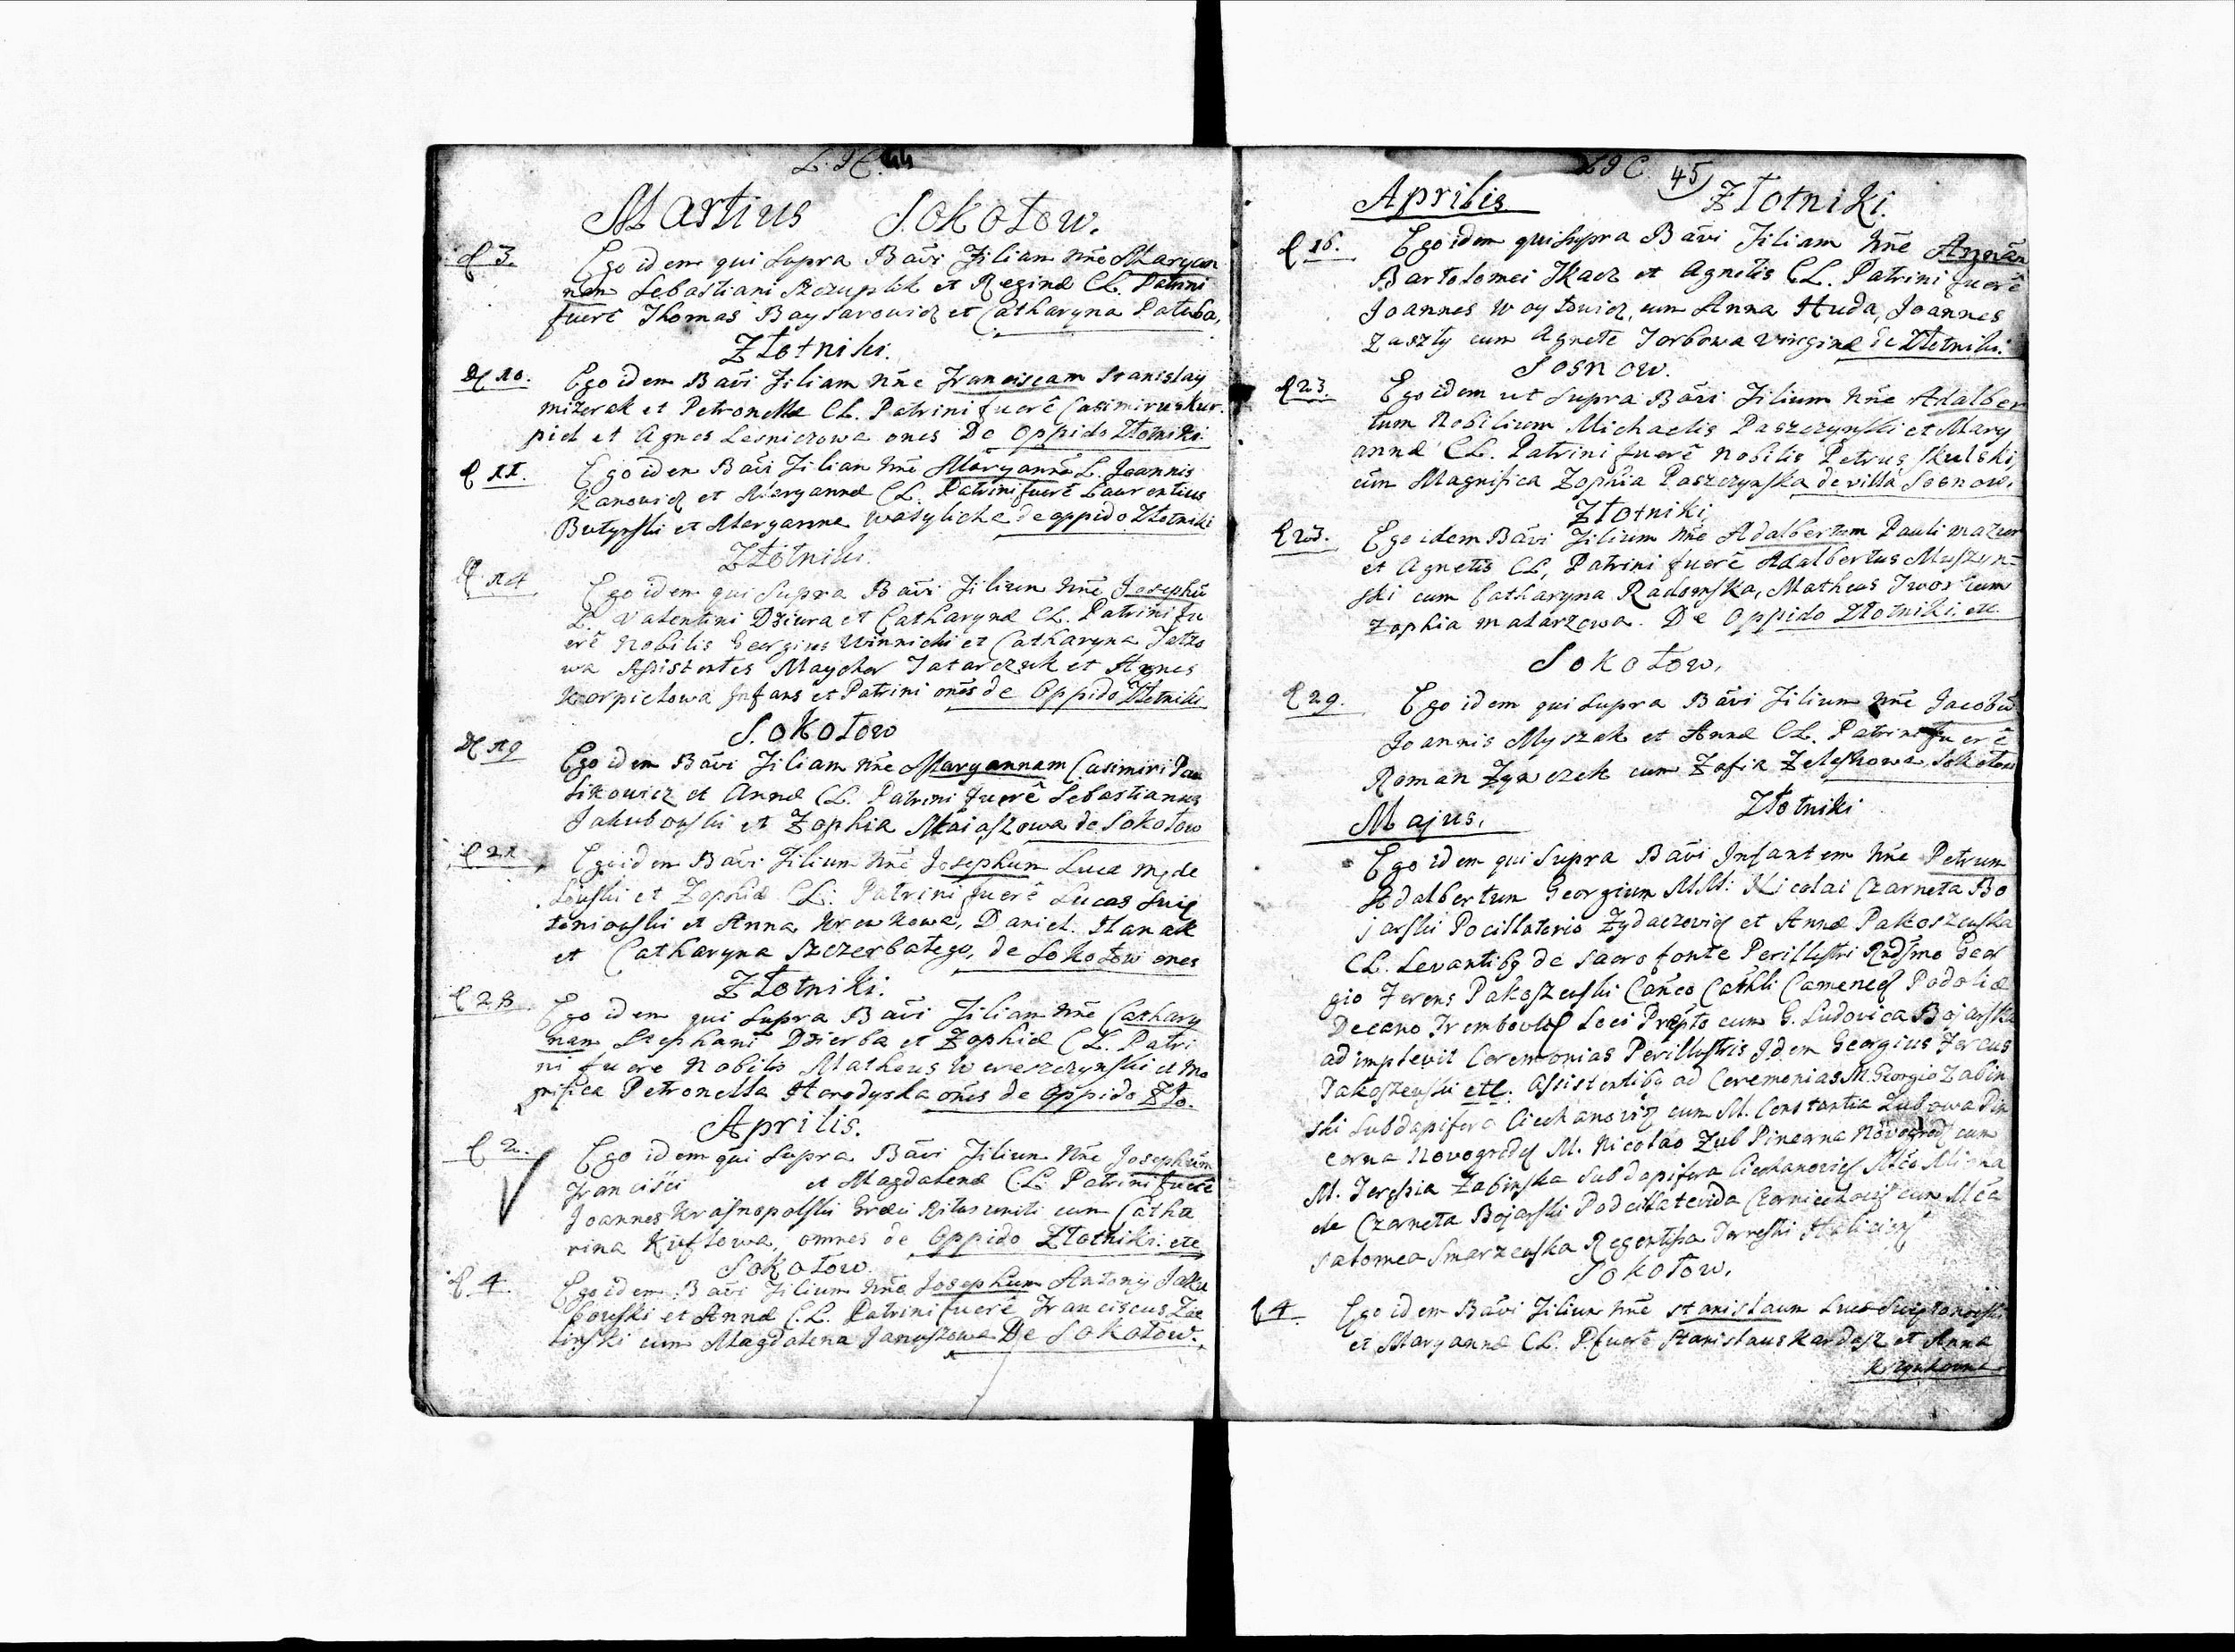 L. I C. 44
Martius Sokołow.
d 3. Ego idem qui supra Bāvi Filiam Nnē Maryan
nam Sebastiani Szczuplik et Reginæ CL. Patrini
fuerē Thomas Baysarowicz et Catharyna Patuba,
Złotniki.
d 10. Ego idem Bāvi Filiam Nnē Franciscam Stanislay
mizerak et Petronellæ CL. Patrini fuerē Casimirus Kur
piel et Agnes Lesniczowa ones De Oppido Złotniki
d 11. Ego idem Bāvi Filiam Nnē Maryannā L. Joannis
Kanowicz et Maryannæ CL. Patrini fuerē Laurentius
Butynski et Maryanna Wasylicha de oppido Złotniki
Złotniki.
d 14 Ego idem qui Supra Bāvi Filium Nnē Josephū
L. Valentini Dziura et Catharynæ CL. Patrini fu
erē Nobilis Georgius Winnicki et Catharyna Jatzo
wa Assistentes Maycher Tatarczuk et Agnes
Karpielowa Infans et Patrini onēs de Oppido Złotniki
Sokołow
d 19 Ego idem Bāvi Filiam Nnē Maryannam Casimiri Pau
sikowicz et Annæ CL. Patrini fuerē Sebastianus
Jakubowski et Zophia Maiaszowa de Sokołow
d 21 Ego idem Bāvi Filium Nnē Josephum Luca Myde
lowski et Zophiæ CL. Patrini fuerē Lucas Swię
toniowski et Anna Krewkowa, Daniel Hanak
et Catharyna Szczerbatego, de Sokołow ones
Złotniki.
d 28 Ego idem qui Supra Bāvi Filiam Nnē Cathary
nam Stephani Dzierba et Zophiæ CL. Patri
ni fuere Nobilis Matheus Wereszczynski et Ma
gnifica Petronella Horodyska onēs de Oppido Zło.
Aprilis.
d 2. Ego idem qui Supra Bāvi Filium Nnē Josephum
Francisci et Magdalenæ CL. Patrini fuerē
Joannes Krasnopolski Græci Ritus uniti cum Catha
rina Kuflowa, omnes de Oppido Złotniki. etc
Sokołow.
d 4. Ego idem Bāvi Filium Nnē Josephum Antonij Jaku
bowski et Annæ C.L. Patrini fuerē Franciscus Zie
linski cum Magdalena Januszowa De Sokołow.
L I C. 45
Aprilis Złotniki.
d 16. Ego idem qui supra Bāvi Filiam Nnē Annam
Bartolomei Tkacz et Agnetis CL. Patrini fuerē
Joannes Woytowicz, cum Anna Huda, Joannes
Zaszly cum Agnete Torbowa virginæ de Złotniki.
Sosnow.
d 23. Ego idem ut Supra Bāvi Filium Nnē Adalber
tum Nobilium Michaelis Paszczynski et Mary
annæ CL. Patrini fuerē Nobilis Petrus Skulski,
cum Magnifica Zophia Paszczynska de villa Sosnow.
Złotniki
d 23. Ego idem Bāvi Filium Nnē Adalbertum Pauli mazur
et Agnetis CL, Patrini fuerē Adalbertus Muszyn=
ski cum Catharyna Radomska, Matheus Iwor cum
Zophia malarzowa. De Oppido Złotniki. etc
Sokołow.
d 29. Ego idem qui Supra Bāvi Filium Nnē Jacobū
Joannis Myszak et Annæ CL. Patrini fuerē
Roman Zynczek cum Zofia Zeleskowa Sokołow
Majus. Złotniki
Ego idem qui Supra Bāvi Infantem Nnē Petrum
Adalbertum Georgium M.M. Nicolai Czarneta Bo
jarski Pocillatoris Żydaczovię et Annæ Pakoszewska
CL. Levantibq de Sacro fonte Perillustri Rndsmo Geor
gio Ferens Pakoszewski Cañco Cathli Camenec Podoliæ
Decano Trembovl Loci Præpto cum G. Ludovica Bojarska
adimplevit Ceremonias Perillustris Idem Georgius Ferens
Pakoszewski etc. Assistentibq ad Ceremonias M. Georgio Zabin
ski Subdapifero Ciechanovię cum M. Constantia Zubowa Pin
cerna Novogrod M. Nicolao Zub Pincerna Novogrod cum
M. Teressia Zabinska Subdapifera Ciechanovię Mco Mliona
de Czarneta Bojarski Podcillatewida Czerniechovię cum Mca
Salomea Smarzewska Regentissa Terrestri Halicien
Sokołow.
d 4. Ego idem Bāvi Filium Nnē Stanislaum Lucæ Swiętoniowski
et Maryannæ CL. P. fuerē Stanislaus Kardasz et Anna